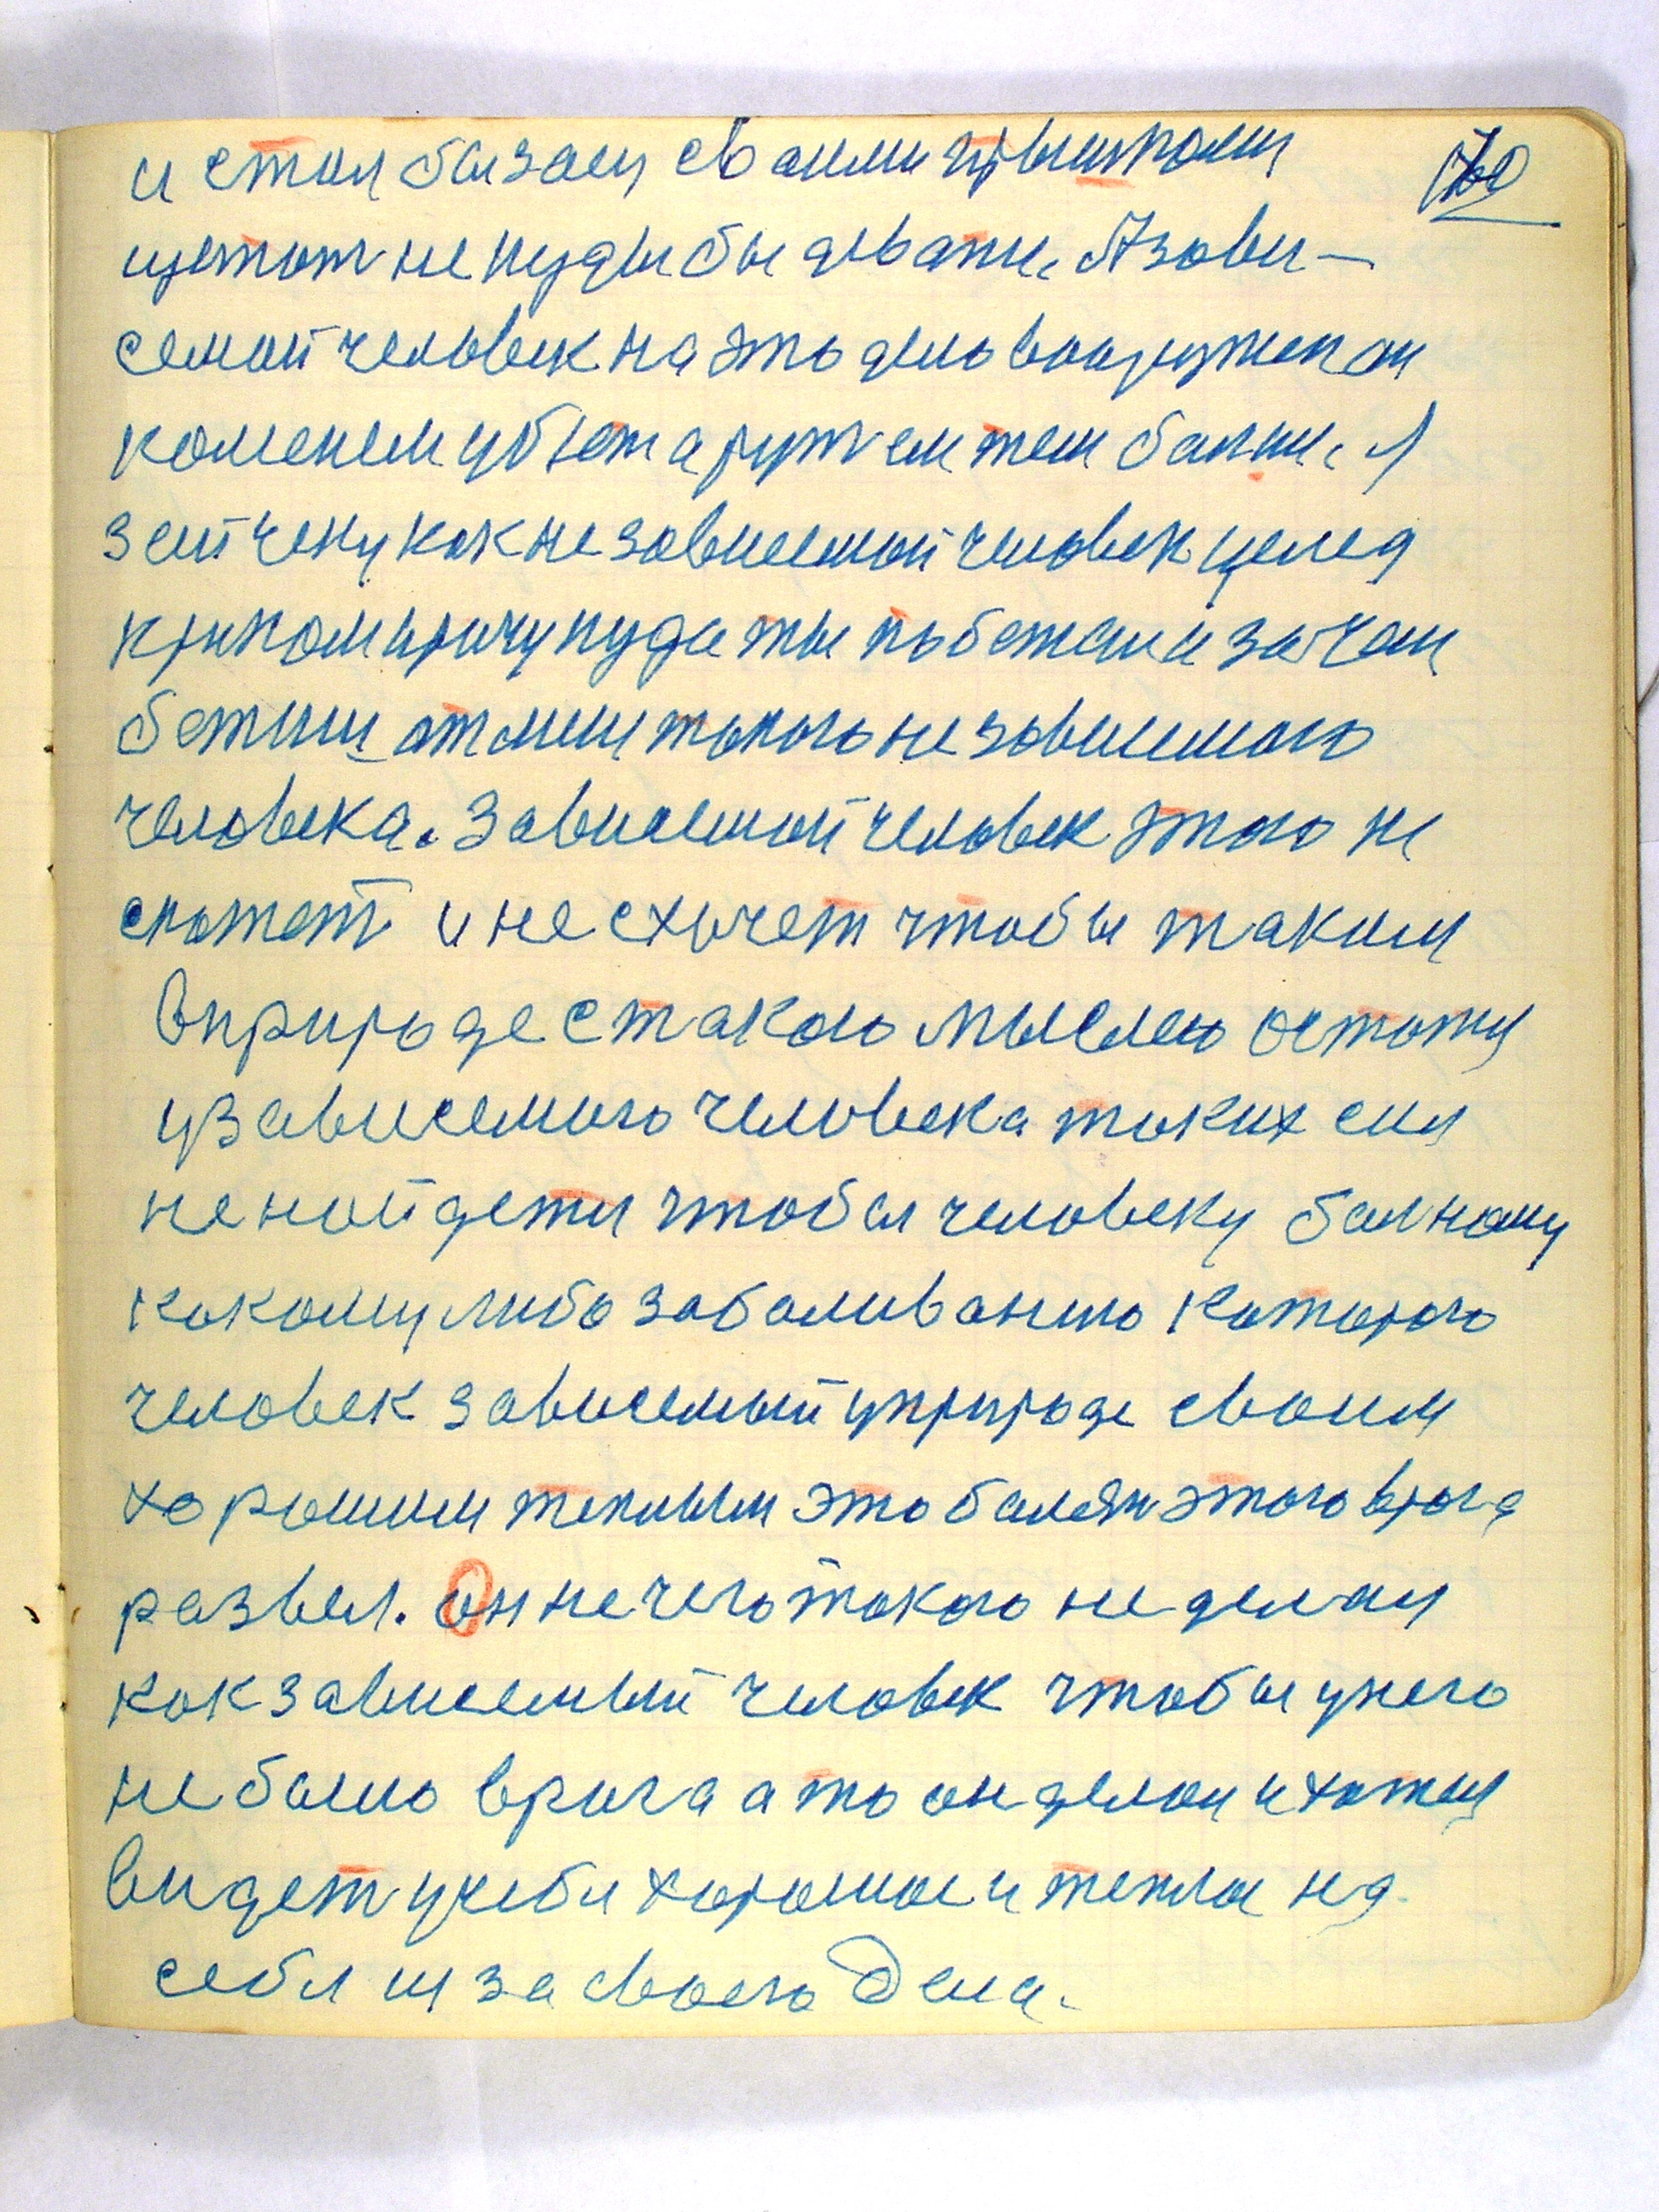 и стал бы заец сваими прышками
цетот не куды бы деватне. Азови-
семой человек на это дело вооружон он
каменем убьет а ружем тем более. Я
зайчену как не зависемой человек целед
криком кричу куда ты побежал и зачем
бежиш от мени такого не зависемого
человека. Зависемой человек этого не
скажет и не схочет чтобы таким
в природе с такою мыслею остатця
узависемого человека таких сил
не найдетця чтобы человеку балному
какому либо забаливанию каторого
человек зависемый уприроде своим
хорошим теплым это балезн этого врага
развел. Он не чего такого не делал
как зависемый человек чтобы унего
не было врага а то он делал и хотел
видет усебя хорошое и теплое на
себя и за своего дела.